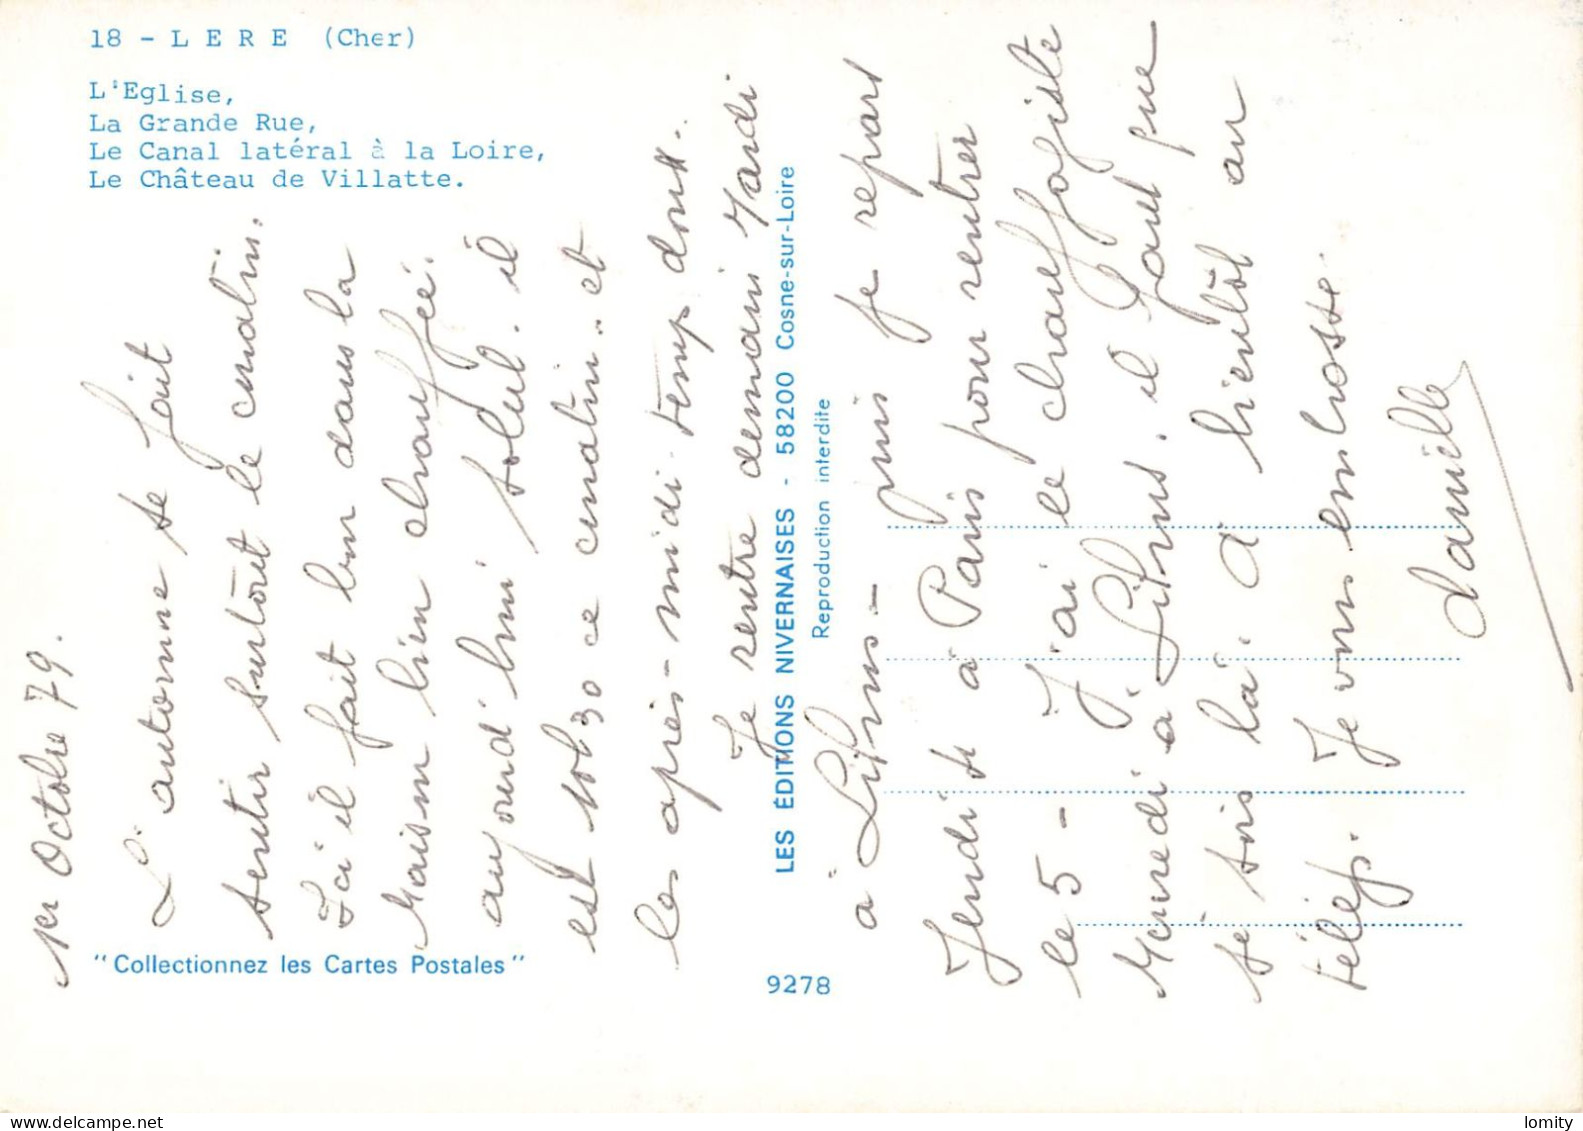 18 - L E R E (Cher)
L'Eglise,
La Grande Rue,
Le Canal latéral à la Loire,
Le Château de Villatte.
1er Octobre 79.
L'automne se fait
sentir surtout le matin.
Ici il fait bon dans la
maison bien chauffée.
aujourd'hui soleil. il
est 10h30 ce matin.. et
les après-midi. temp doux..
Je rentre demain Mardi
à - puis je repars
Jeudi à Paris pour rentrer
le 5 - J'ai le chauffagiste
Mercredi à . il faut que
je sois là. A bientôt au
téléph. Je vous embrasse.
Danielle
LES ÉDITIONS NIVERNAISES - 58200 Cosne-sur-Loire
Reproduction interdite
"Collectionnez les Cartes Postales"
9278
lomity